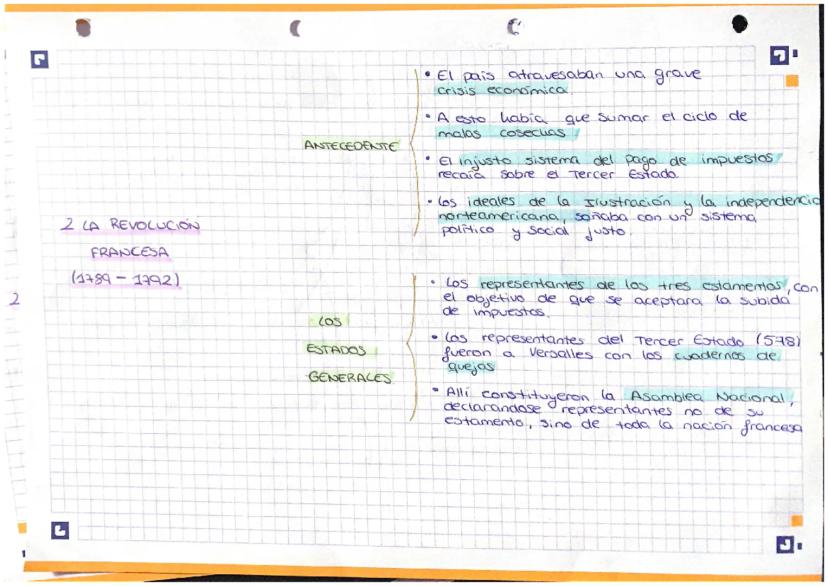 • El pais atravesaban una grave
crisis económica.
• A esto había que sumar el ciclo de
malas cosechas
ANTECEDENTE
• El injusto sistema del pago de impuestos
recaía sobre el Tercer Estado.
• Los ideales de la Ilustración y la independencia
norteamericana, soñaba con un sistema
político y social justo.
2 LA REVOLUCIÓN
FRANCESA
(1789 - 1792)
2
• Los representantes de los tres estamentos, con
el objetivo de que se aceptara la subida
de impuestos.
LOS
ESTADOS
GENERALES
• Los representantes del Tercer Estado (578)
fueron a Versalles con los cuadernos de
quejas
• Allí constituyeron la Asamblea Nacional,
declarandose representantes no de su
estamento, sino de toda la nación francesa